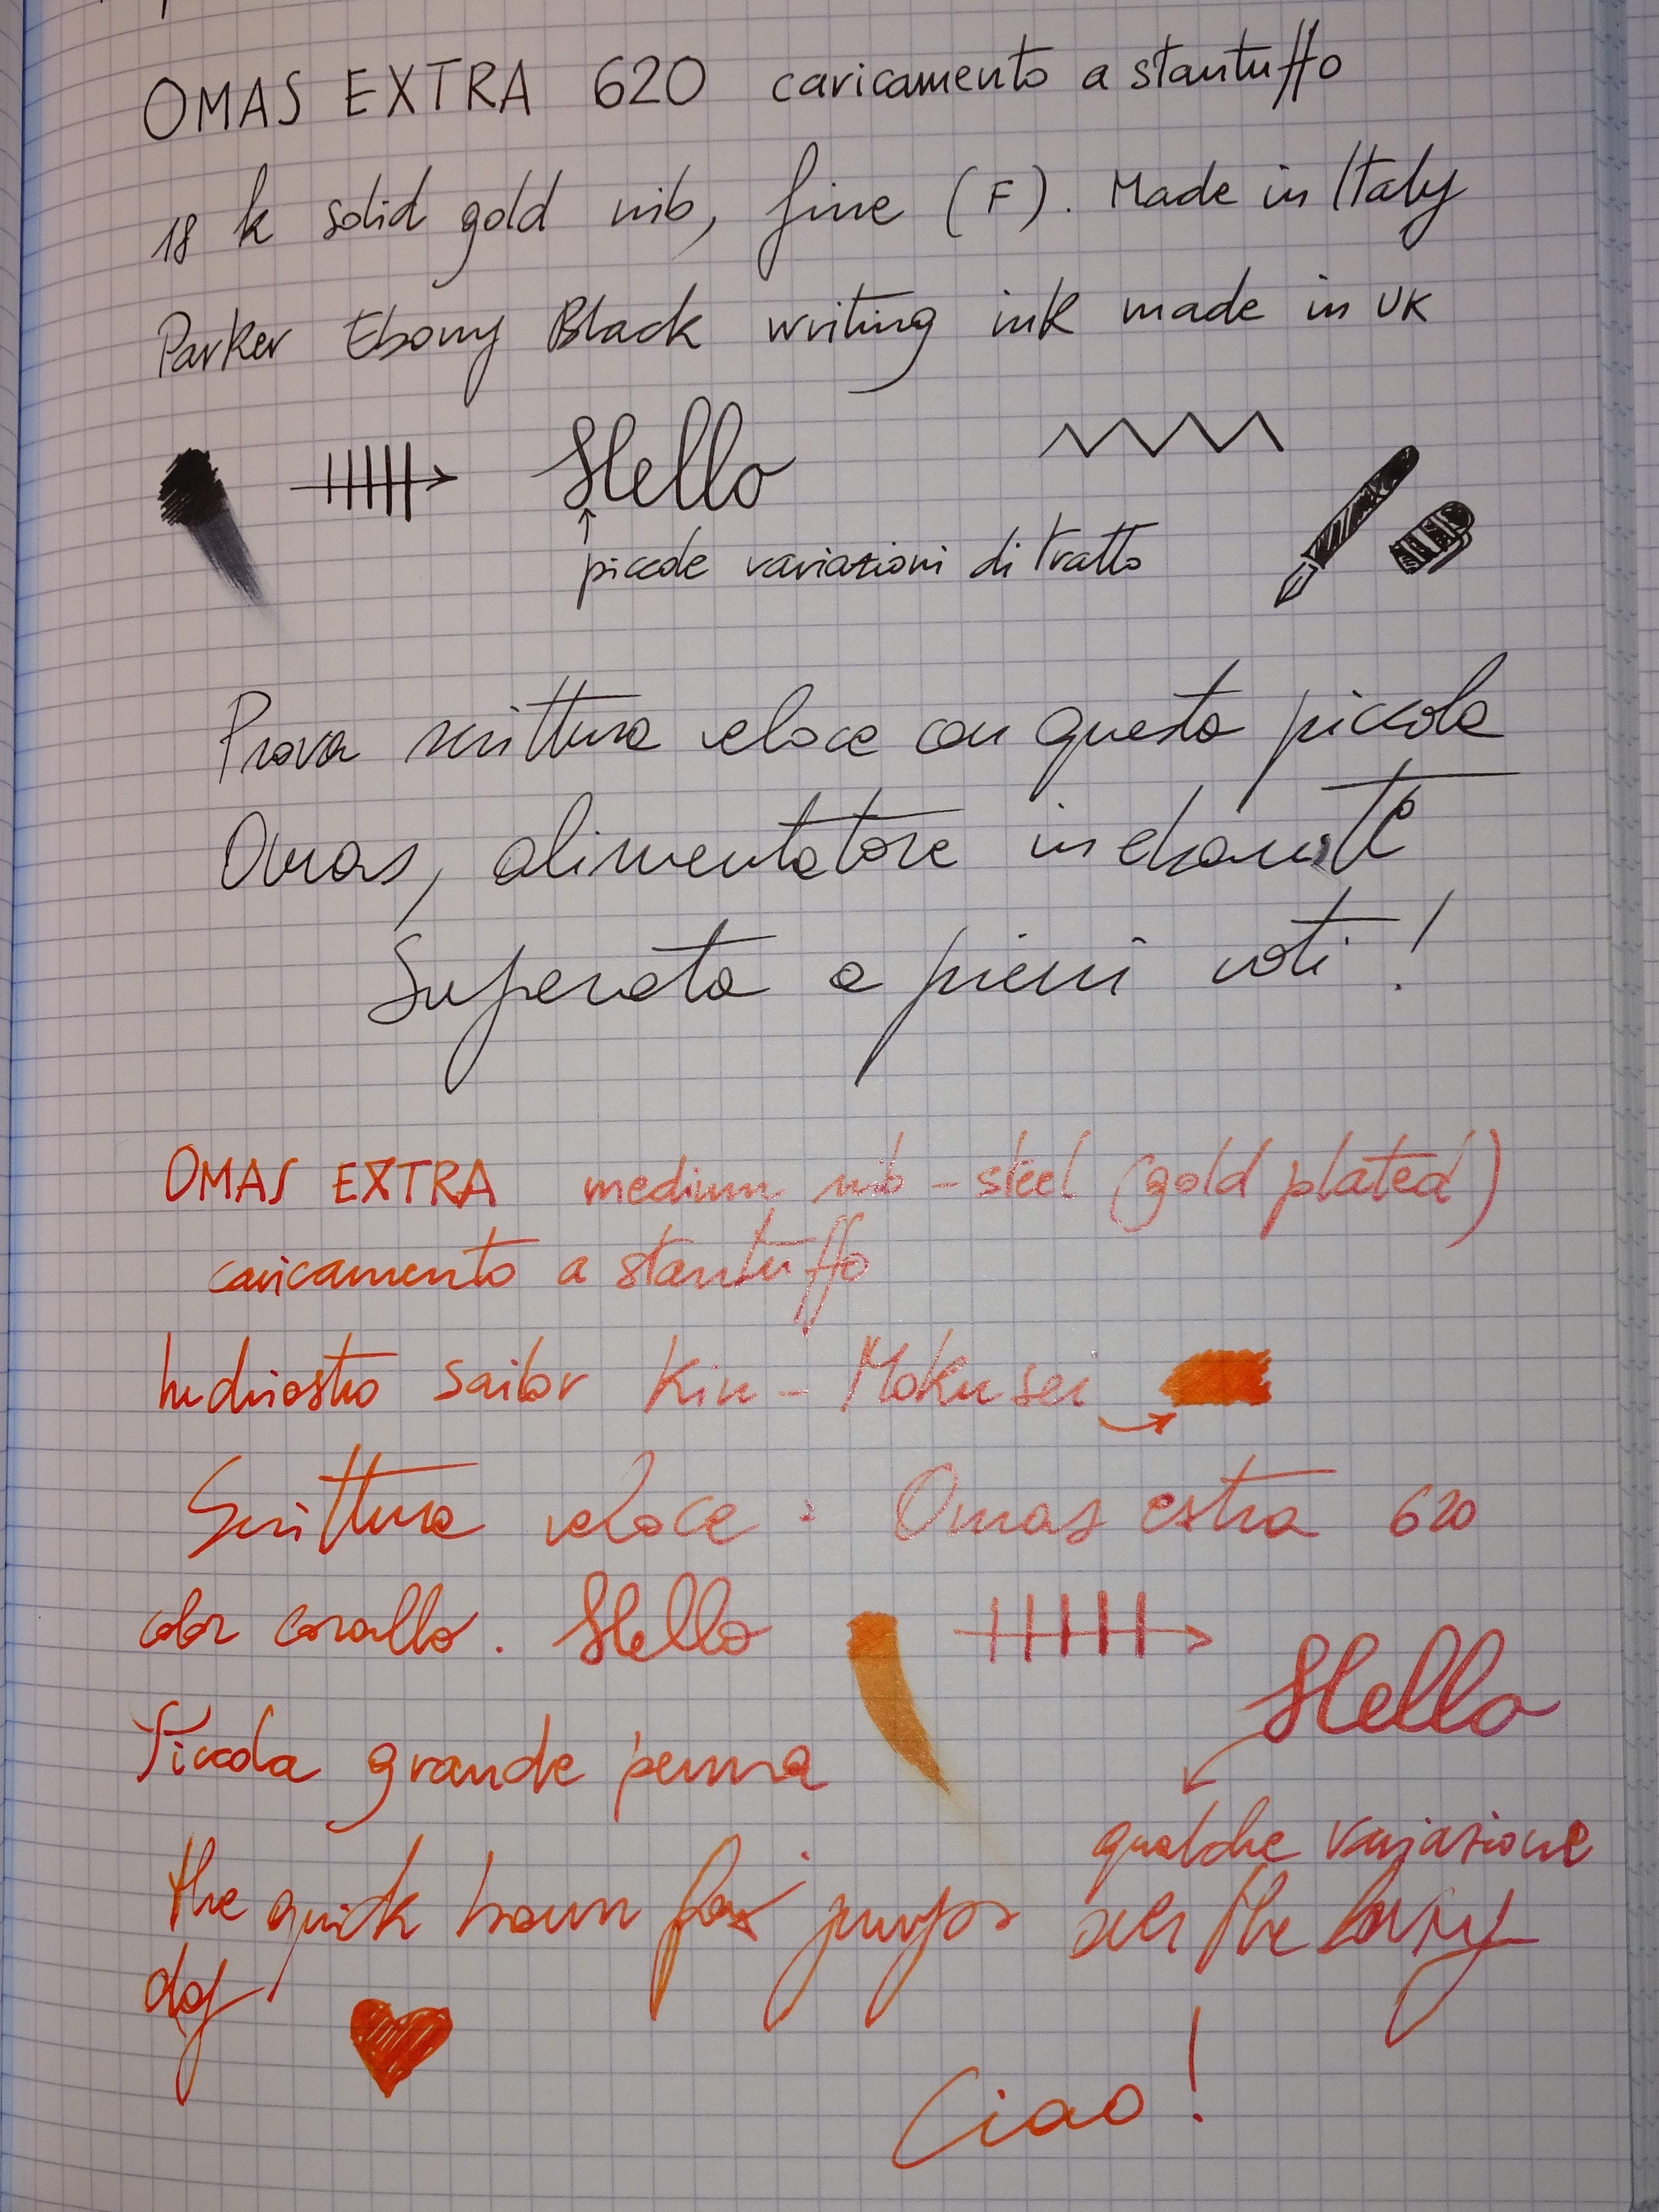 OMAS EXTRA 620 caricamento a stantuffo
18 k solid gold nib, fine (F). Made in Italy
Parker Ebony Black writing ink made in UK
Hello
piccole variazioni di tratto
Prova scrittura veloce con questa piccola
Omas, alimentatore in ebanite
Superata a pieni voti!
OMAS EXTRA medium nib - steel (gold plated)
caricamento a stantuffo
Inchiostro Sailor Kin-Mokusei
Scrittura veloce: Omas extra 620
color corallo. Hello
Hello
Piccola grande penna
qualche variazione
the quick brown fox jumps over the lazy
dog
Ciao!